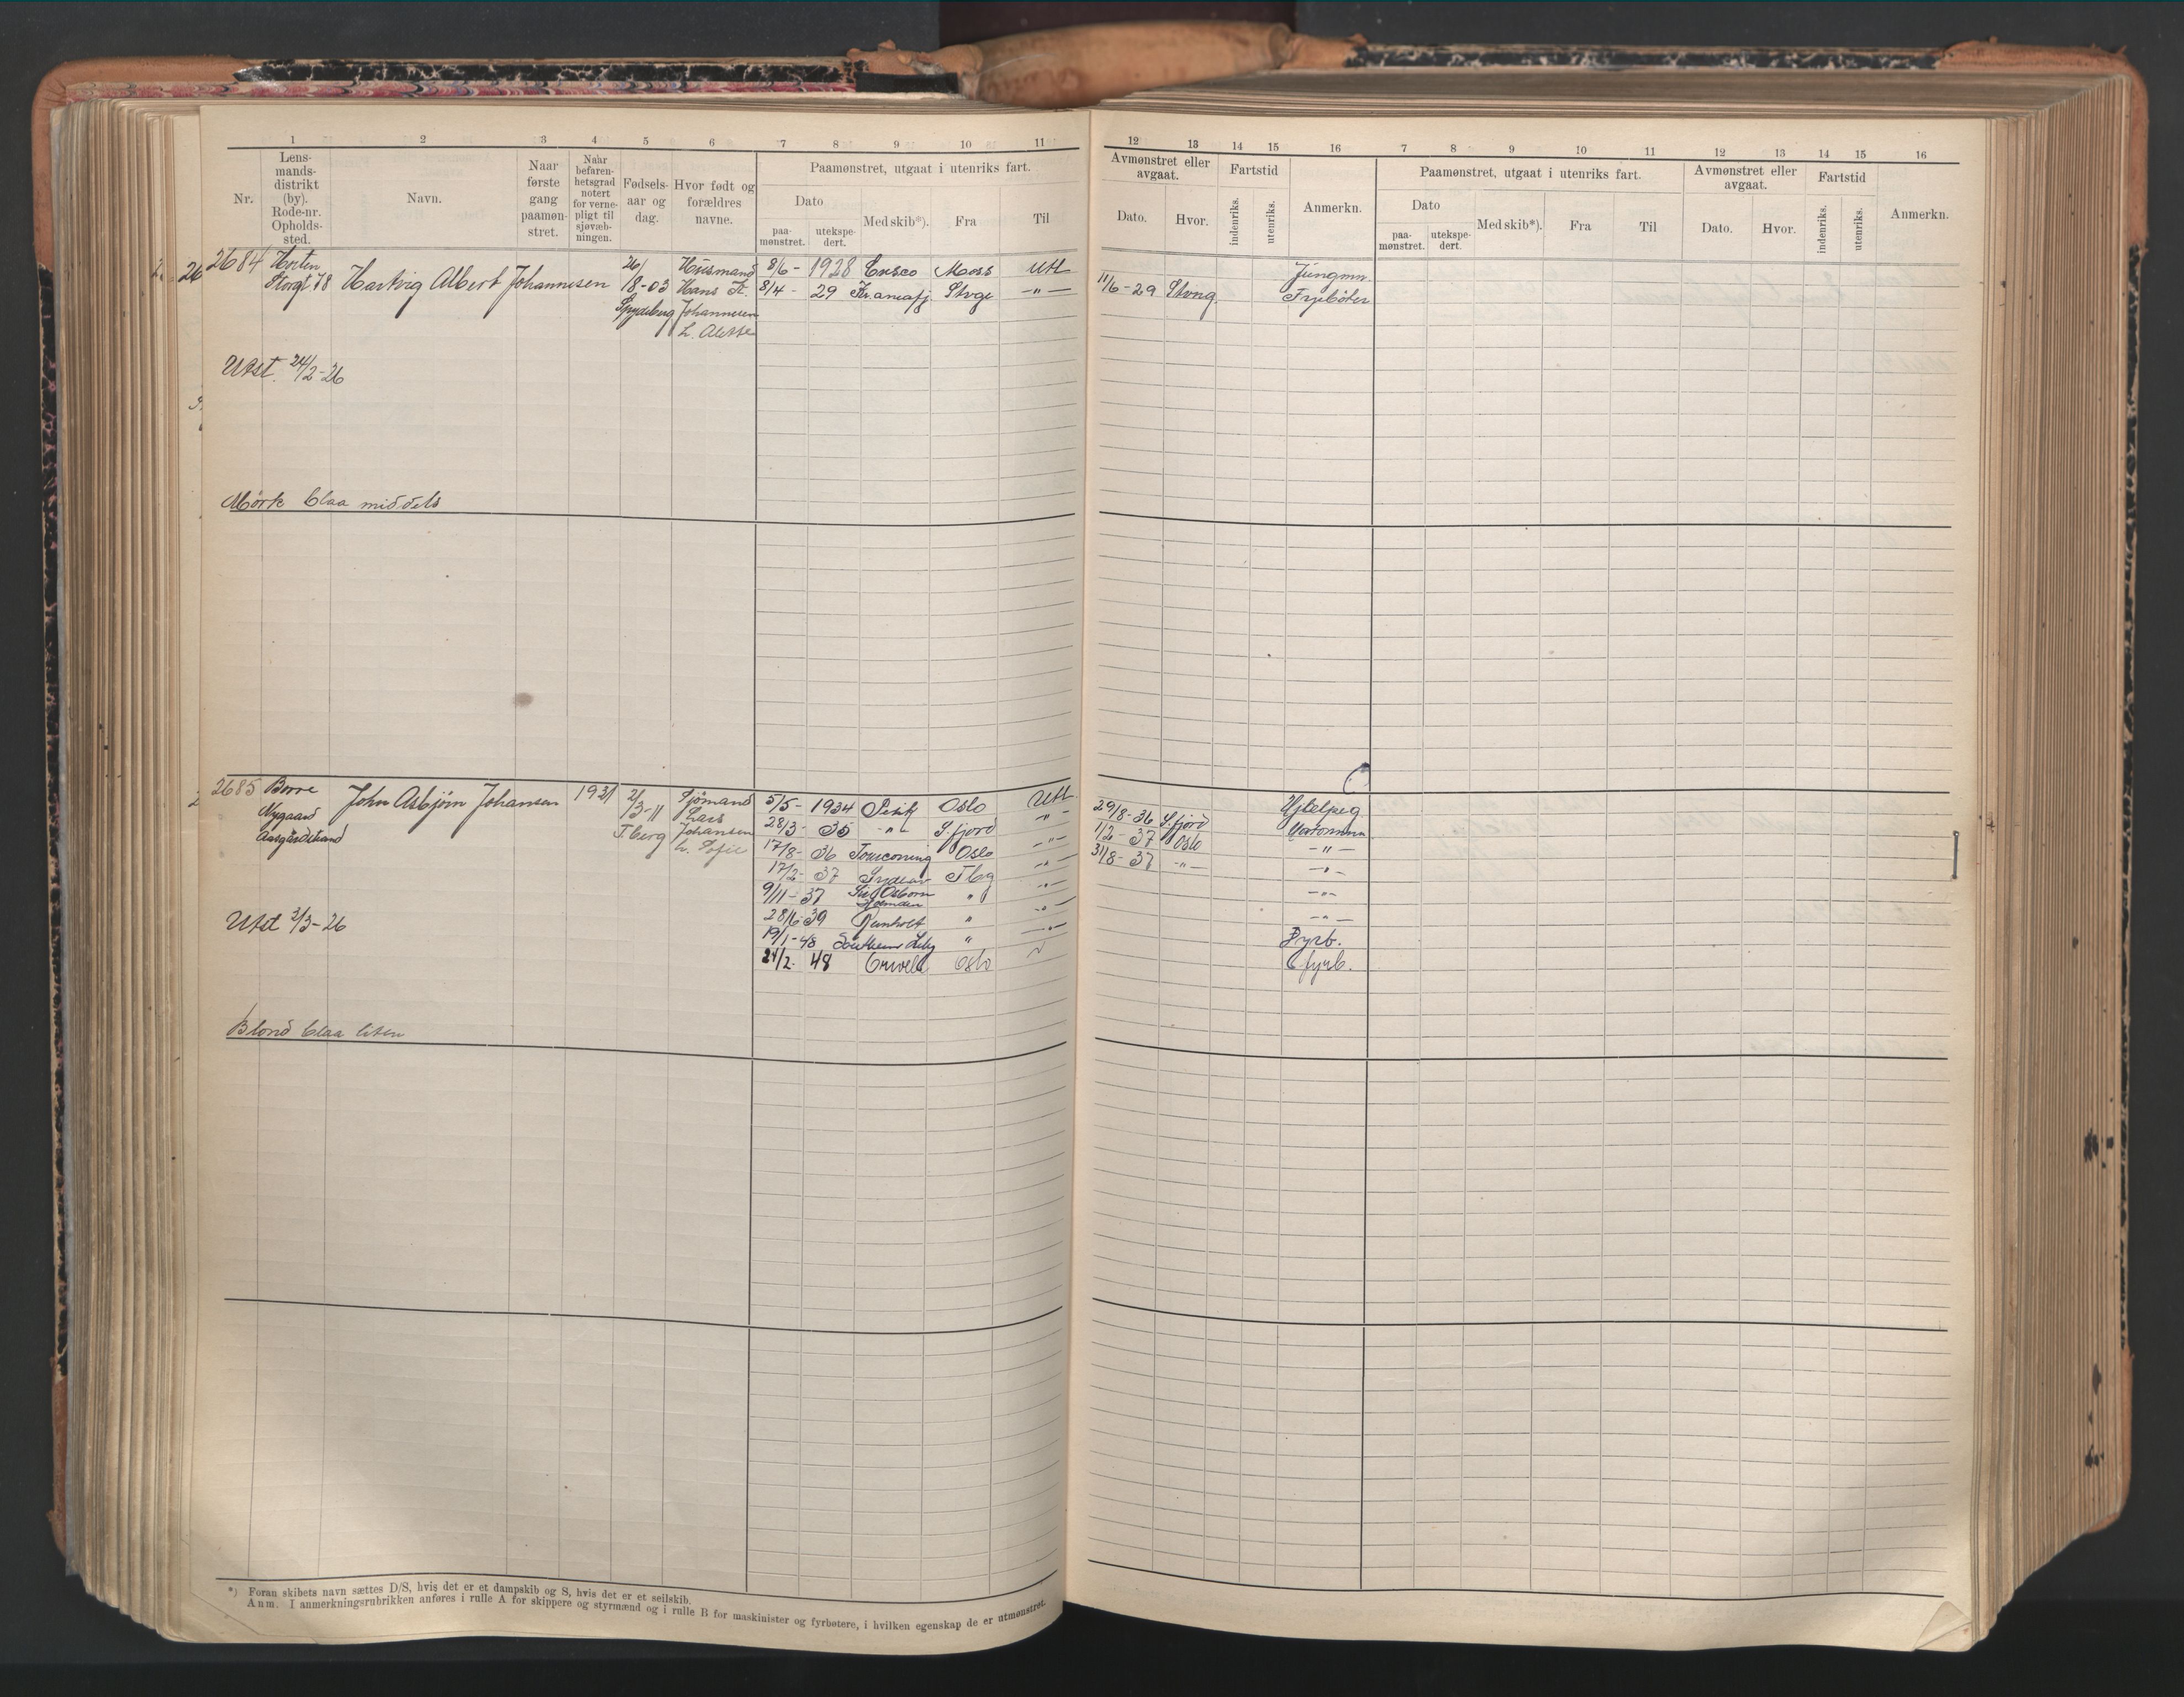 1 2 3 4 5 6 7 8 9 10 11
Nr.
Lens-
mands-
distrikt
(by).
Rode-nr.
Opholds-
sted.
Navn.
Naar
første
gang
paamøn-
stret.
Naar
befaren-
hetsgrad
notert
for verne-
pligt til
sjøvæb-
ningen.
Fødsels-
aar og
dag.
Hvor født og
forældres
navne.
Paamønstret, utgaat i utenriks fart.
Dato
paa-
mønstret.
utekspe-
dert.
Med skib*).
Fra
Til
2684 Horten
Storgt 78 Hartvig Albert Johannesen
26/
18-03
Spydeberg
Husmand
Hans
Johannesen
8/6 - 1928 Moss Utl
8/4 - 29 -"-
Utst. 24/2-26
Mörk blaa middels
2685 Borre
Nygaard
Aasgårdstrand
John Asbjörn Johansen 1931
2/
/3-11
Tberg
Sjömand
Lars
Johansen
h. Sofie
5/5 - 1934 Oslo Utl
28/3 - 35 -"- S.fjord -"-
17/8 - 36 Oslo -"-
17/2 - 37 Tbg -"-
9/11 - 37 Sir Osborn
Holmden " -"-
28/6 39 " -"-
19/1-48 Southern Lily " -"-
24/2 - 48 Orwell Oslo
Utst 2/3-26
Blond blaa liten
*) Foran skibets navn sættes D/S, hvis det er et dampskib og S, hvis det er et seilskib.
Anm. I anmerkningsrubrikken anføres i rulle A for skippere og styrmænd og i rulle B for maskinister og fyrbøtere, i hvilken egenskap de er utmønstret.
12 13 14 15 16 7 8 9 10 11 12 13 14 15 16
Avmønstret eller
avgaat.
Dato. Hvor.
Fartstid
indenriks.
utenriks.
Anmerkn.
Paamønstret, utgaat i utenriks fart.
Dato
paa-
mønstret.
utekspe-
dert.
Med skib*).
Fra
Til
Avmønstret eller
avgaat.
Dato. Hvor.
Fartstid
indenriks.
utenriks.
Anmerkn.
Jungmn.
11/6-29 Fyrböter
29/8-36 S.fjord
1/2-37 Oslo Motormn
31/8-37 -"- -"-
-"-
-"-
-"-
Fyrb.
fyrb.